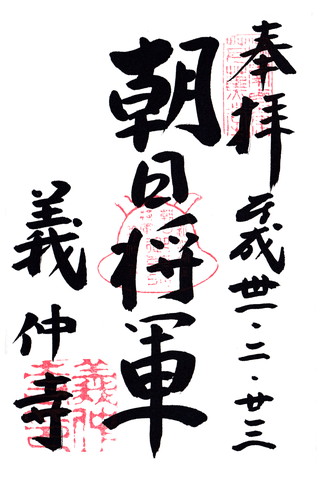 奉拝
平成卅一・二・廿三
朝日将軍
義仲寺